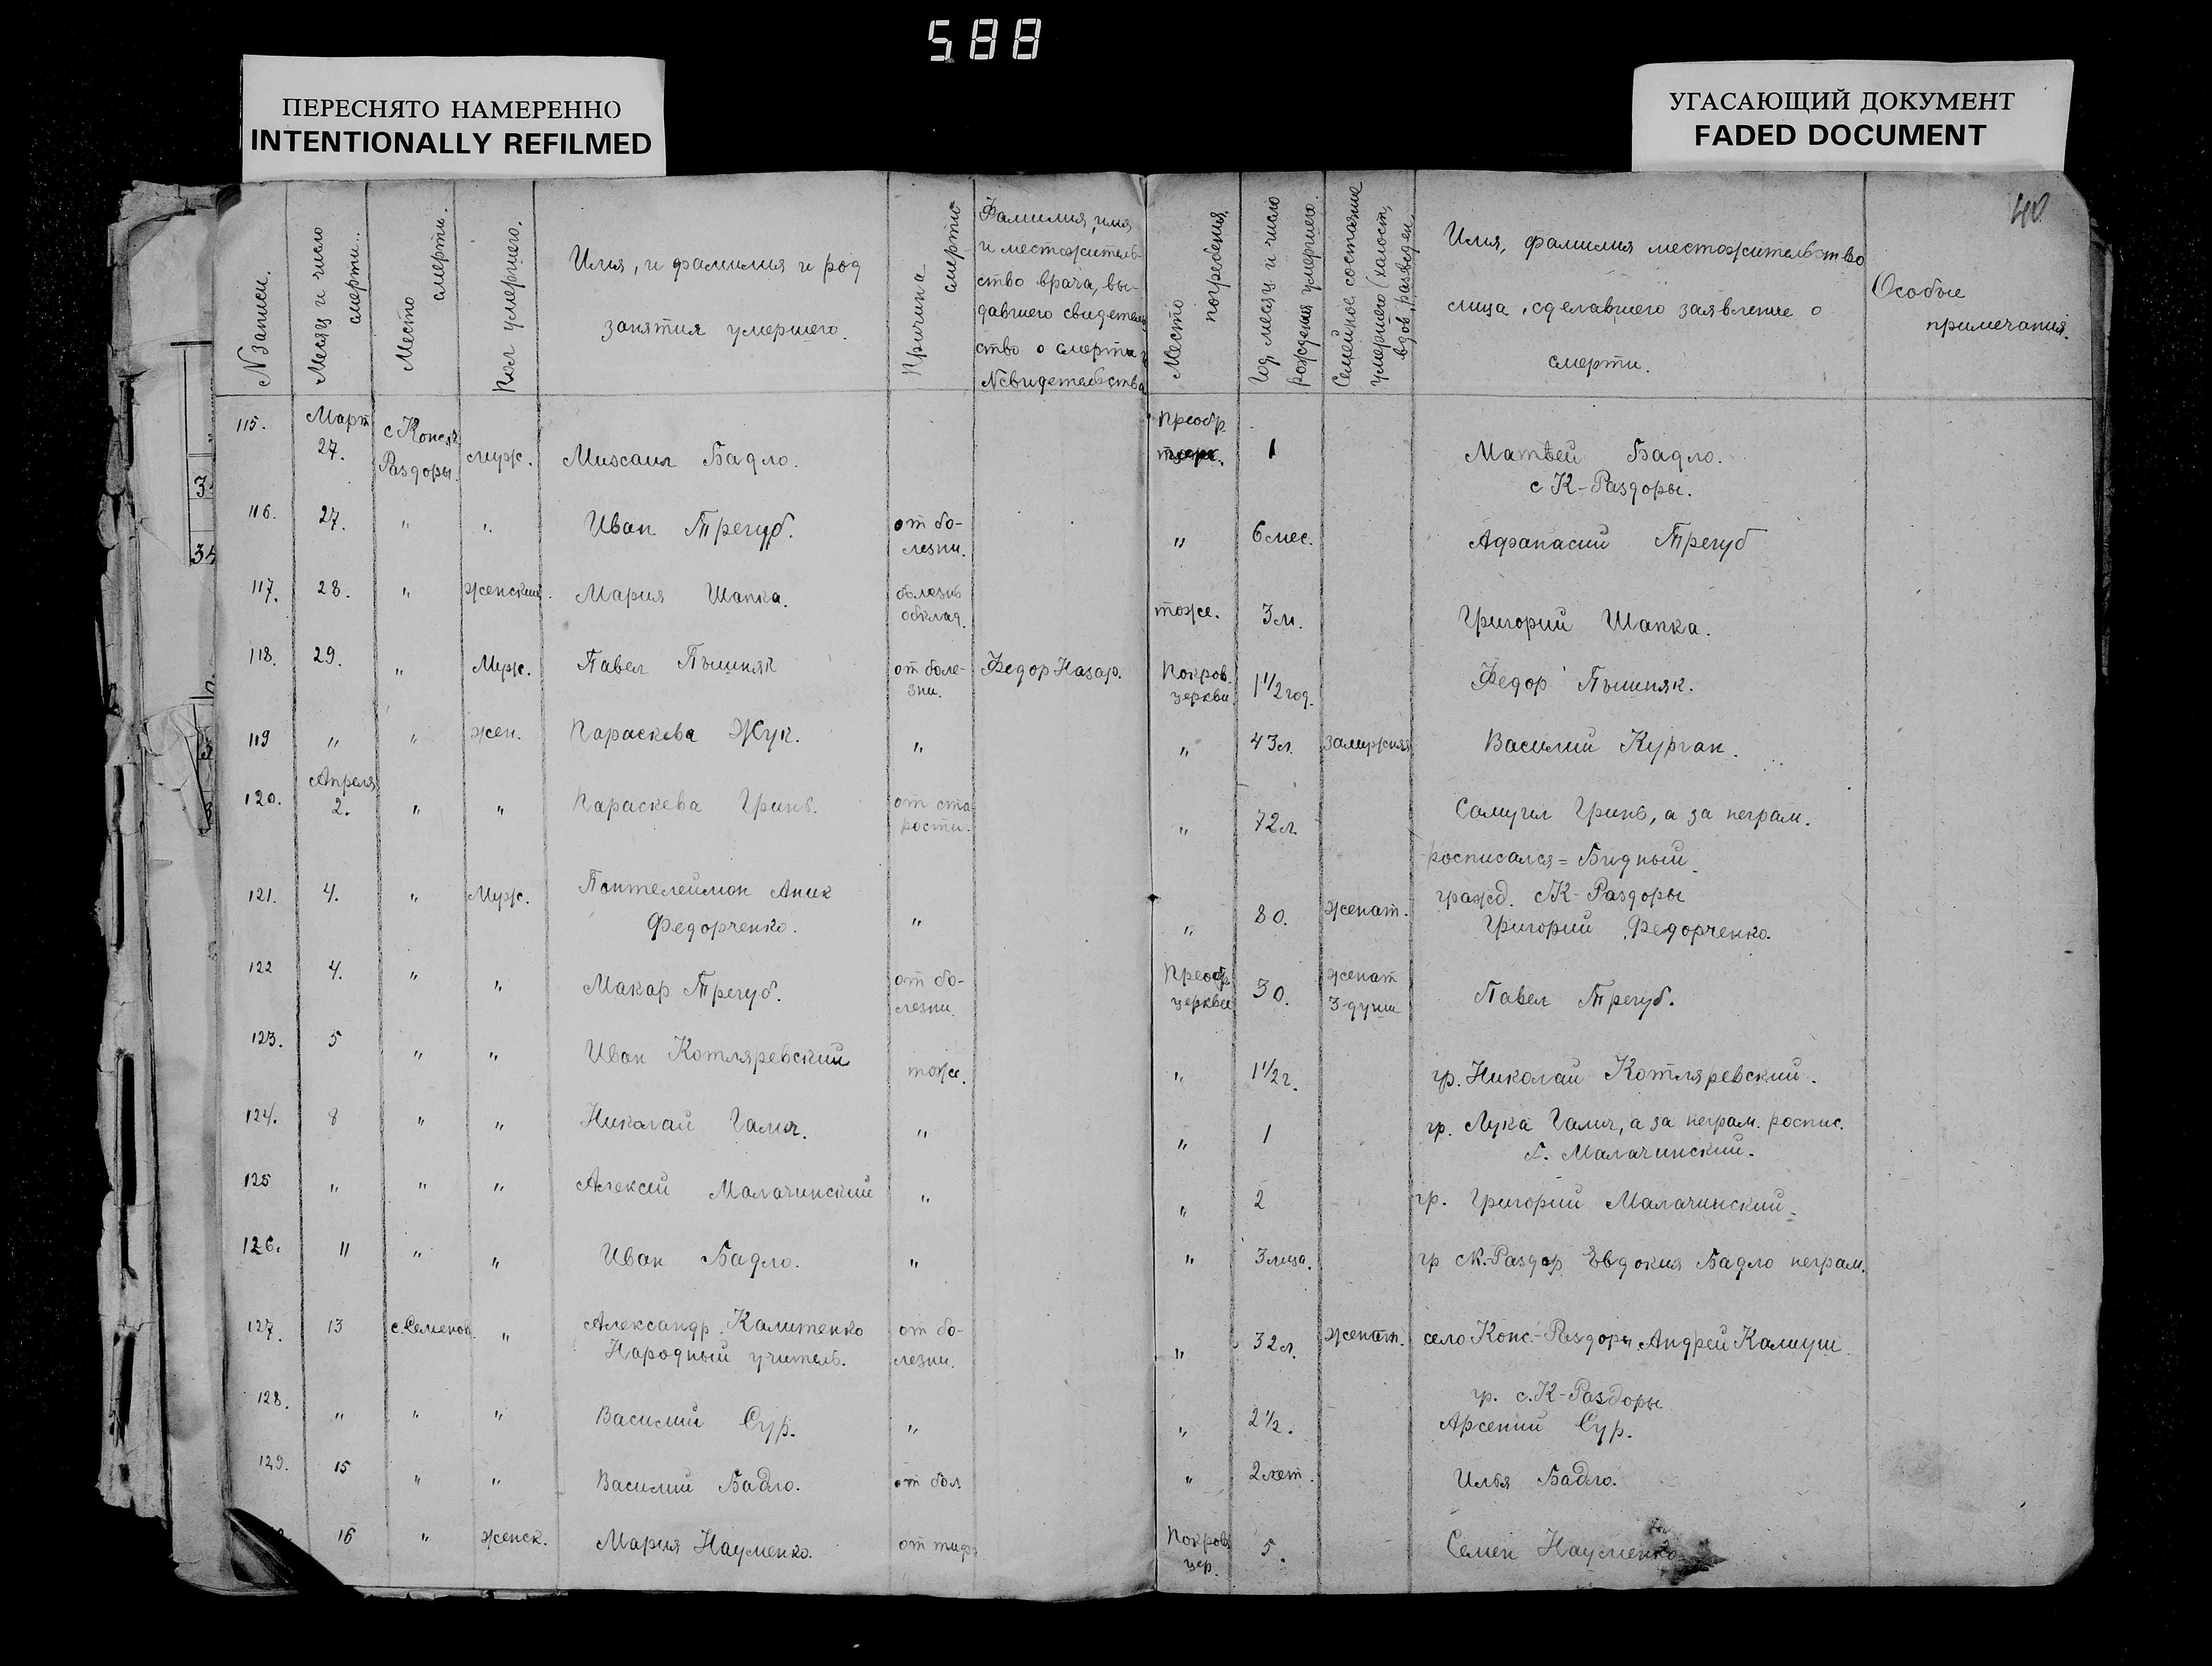 588
ПЕРЕСНЯТО НАМЕРЕННО
INTENTIONALLY REFILMED
УГАСАЮЩИЙ ДОКУМЕНТ
FADED DOCUMENT
40
№ записи.
Месяц и число смерти.
Место смерти.
Пол умершего.
Имя, и фамилия и род
занятия умершего.
Причина смерти
Фамилия, имя
и местожитель-
ство врача, вы-
давшего свидетель
ство о смерти и
№ свидетельства
Место погребения.
Год, месяц и число
рождения умершего.
Семейное состояние
умершего (холост,
вдов, разведен.
Имя, фамилия местожительство
лица, сделавшего заявление о
смерти.
Особые
примечания.
115. Март 27. с Конск Раздоры. муж. Михаил Бадло. Преобр 1 Матвей Бадло.
с К-Раздоры.
116. 27. " " Иван Трегуб. от бо-
лезни. " 6 мес. Афанасий Трегуб
117. 28. " женский. Мария Шапка. болезнь
обклад. тоже. 3 м. Григорий Шапка.
118. 29. " Муж. Павел от боле-
зни. Федор Назар. Покров.
церкви 1 1/2 год. Федор
119 " " жен. Параскева Жук. " " 43 л. замужняя Василий Курган.
Апреля
120. 2. " " Параскева Гринь. от ста-
рости. " 72 л. Самуил Гринь, а за неграм.
росписался = Бидный.
121. 4. " Муж. Пантелеймон Аник
Федорченко. " " 80. женат. гражд. с К-Раздоры
Григорий Федорченко.
122 4. " " Макар Трегуб. от бо-
лезни. Преобр
церкви 30. женат
3 души Павел Трегуб.
123. 5 " " Иван Котляревский тоже. " 1 1/2 г. гр. Николай Котляревский.
124. 8 " " Николай Галич. " " 1 гр. Лука Галич, а за неграм. роспис.
Г. Малачинский.
125 " " " Алексей Малачинский " " 2 гр. Григорий Малачинский.
126. 11 " " Иван Бадло. " " 3 м-ца. гр с К.-Раздор Евдокия Бадло неграм.
127. 13 с. Семенов. " Александр Калитенко
Народный учитель. от бо-
лезни. " 32 л. женат. село Конс.-Раздоры Андрей
128. " " " Василий Сур. " " 2 1/2. гр. с. К-Раздоры
Арсений Сур.
129. 15 " " Василий Бадло. от бол. " 2 лет. Илья Бадло.
16 " женск. Мария Науменко. от тиф. Покров
цер. 5. Семен Науменко